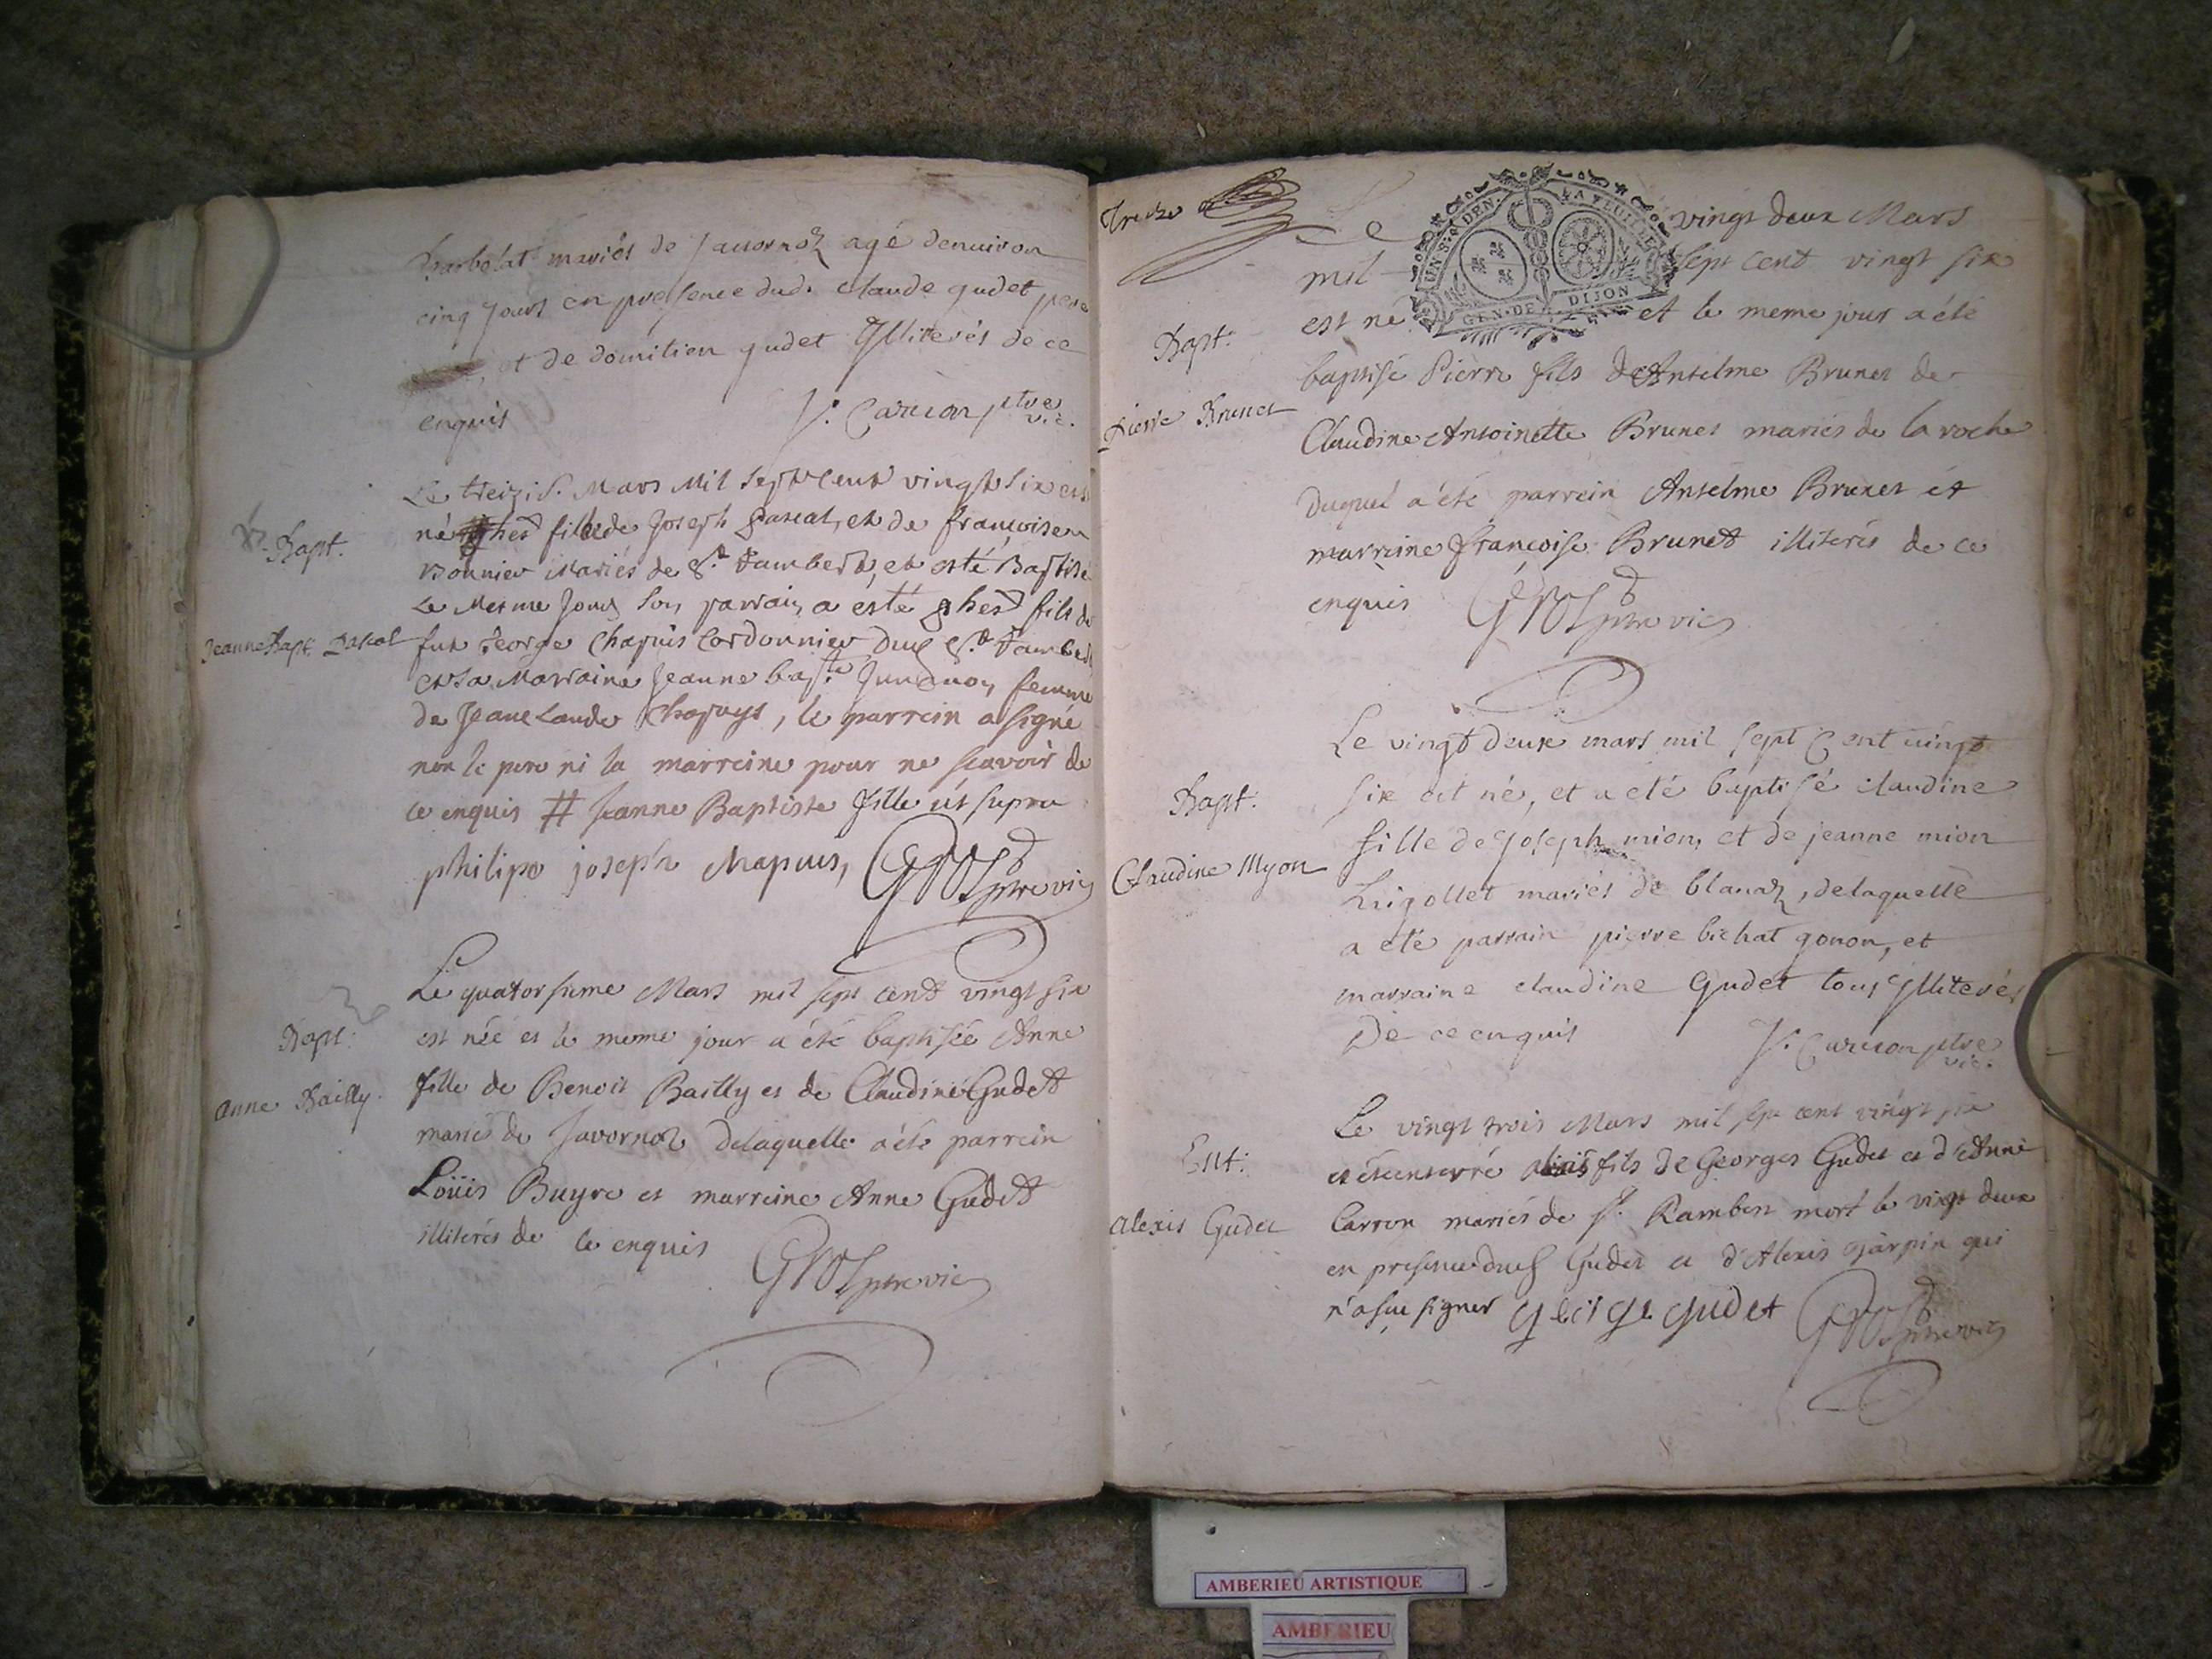 Barbelat mariés de Javornoz agé denuiron
cinq jours en presence dud. claude gudet pere
et de domitien gudet Illiterés de ce
enquis J. Carron ptre vic.
Bapt.
Jeanne Bapt. Pascal
Le treizie. Mars Mil Sept Cent vingt Six est
né fille de Joseph Pascal, et de françoise
Bonnier Mariés de St. Rambert, et esté Baptisé
Le Mesme Jour, Son parrain a esté phes fils de
fut George Chapuis Cordonnier dud St. Rambert
et Sa Marraine Jeanne bapte. femme
de Jean Claude Chapuys, le parrein a signé
non le pere ni la marreine pour ne scavoir de
ce enquis # Jeanne Baptiste fille ut supra
philipe joseph Chapuis, Gros ptre vic
Bapt.
anne Bailly.
Le quatorsieme Mars mil sept cent vingt six
est née et le meme jour a été baptisée Anne
fille de Benoit Bailly et de Claudine Gudet
mariés de Javornoz delaquelle a été parrein
Loüis Buyre et marreine Anne Gudet
illiterés de ce enquis Gros ptre vic
Treize
UN S. 4 DEN. LA FEUILLE
GEN. DE DIJON
Bapt.
pierre Brunet
Le vingt deux Mars
mil sept cent vingt six
est né et le meme jour a été
baptisé Pierre fils de Anselme Brunet de
Claudine Antoinette Brunet mariés de la roche
duquel a été parrein Anselme Brunet et
marreine françoise Brunet illiterés de ce
enquis Gros ptre vic
Bapt.
Claudine Myon
Le vingt deux mars mil sept Cent vingt
six est né, et a eté baptisé claudine
fille de joseph mion, et de jeanne mion
Lrigollet mariés de blanaz, delaquelle
a eté parrain pierre bichat gonon, et
marraine claudine Gudet tous Illiterés
De ce enquis J. Carron ptre vic.
Ent:
alexis Gudet
Le vingt trois Mars mil sept cent vingt six
a été enterré alexis fils de Georges Gudet et d'Anne
Carron mariés de St. Rambert mort le vingt deux
en presence dud Gudet et d'Alexis Jarpin qui
n'a sçu signer george gudet Gros ptre vic
AMBERIEU ARTISTIQUE
AMBERIEU